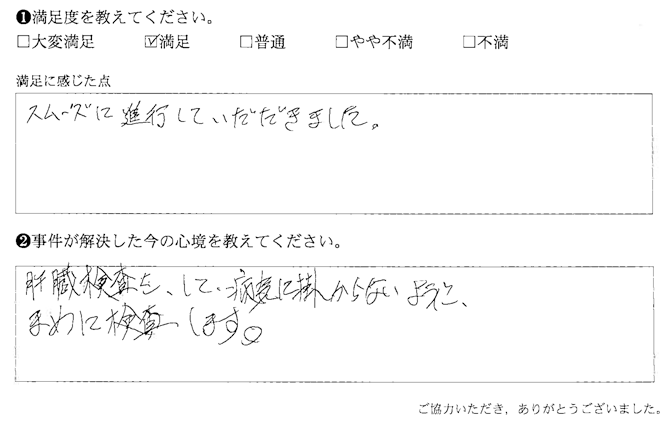 ❶満足度を教えてください。
□大変満足 ☑満足 □普通 □やや不満 □不満
満足に感じた点
スムーズに進行していただきました。
❷事件が解決した今の心境を教えてください。
肝臓検査を、して、病気に掛からないように、
まめに検査します。
ご協力いただき，ありがとうございました。